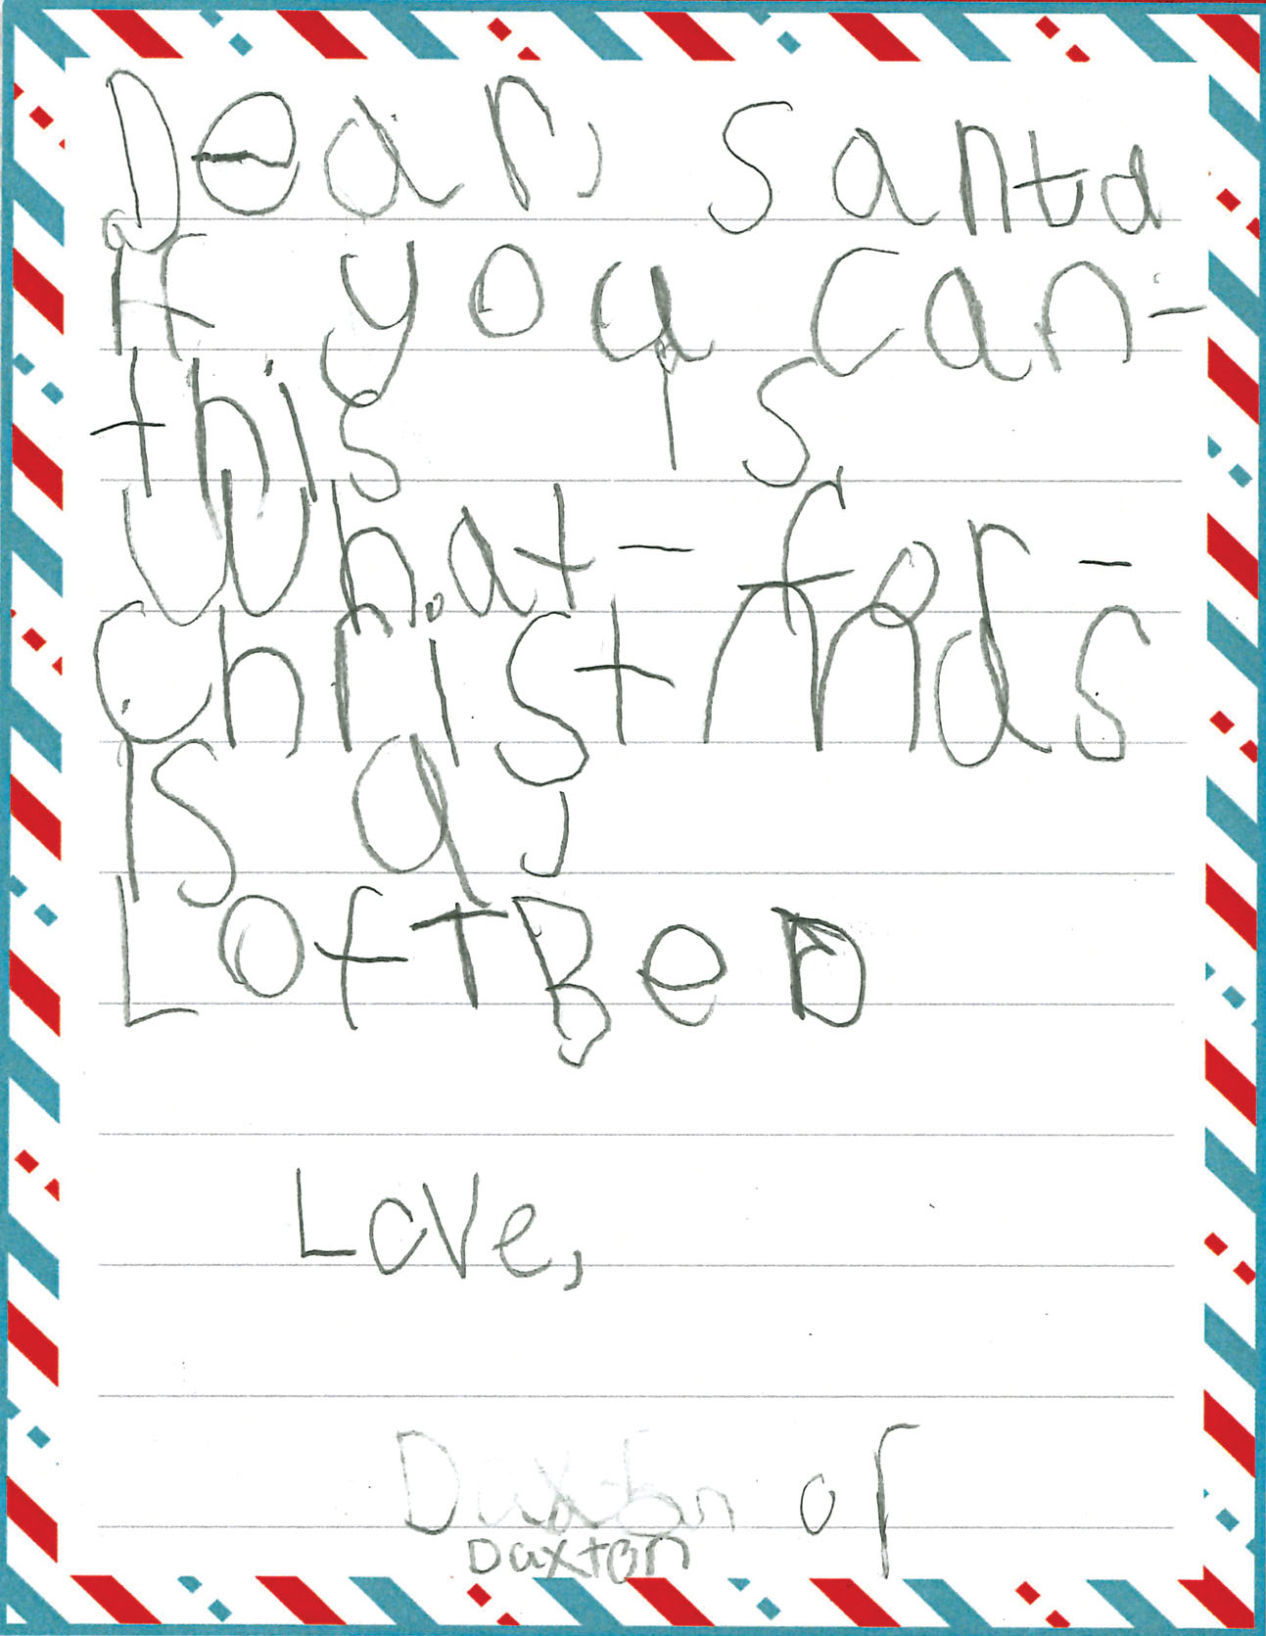 Dear, Santa
If you can-
this is
What-for-
Christmas
is a,
LofTBeD
Love,
Daxton of
Daxton